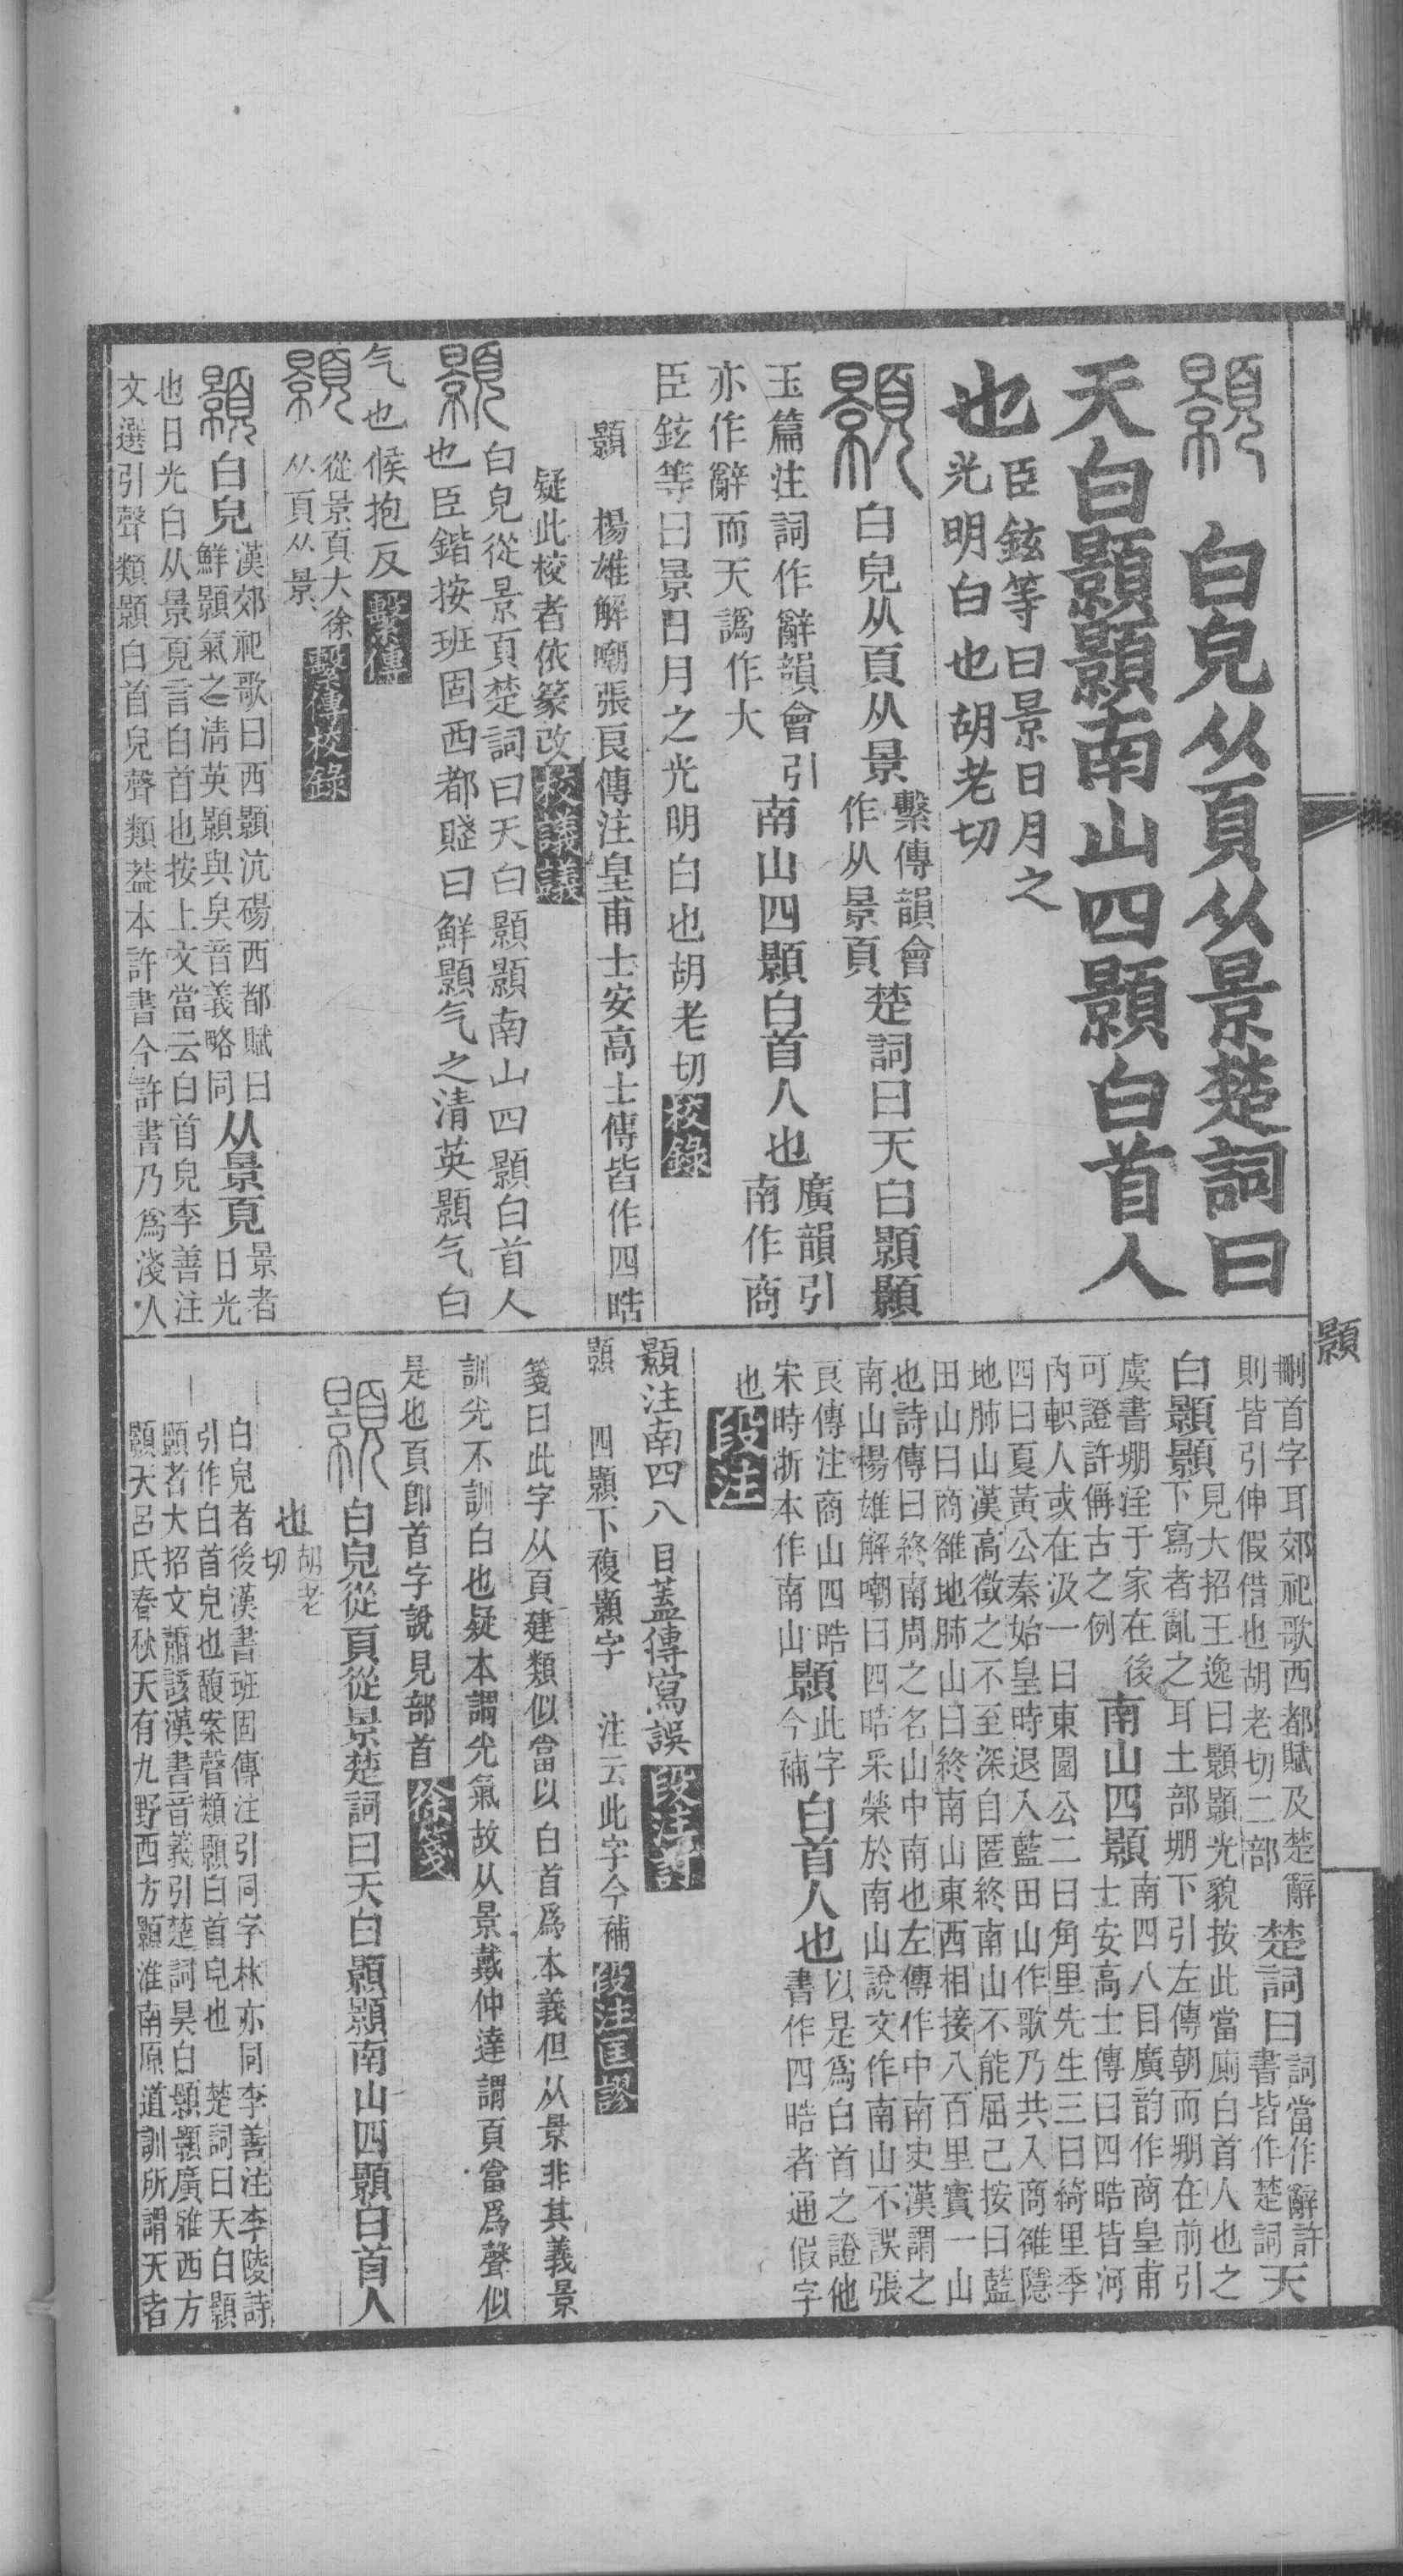 顥 白皃从頁从景楚詞曰
天白顥顥南山四顥白首人
也臣鉉等曰景日月之
光明白也胡老切
顥白皃从頁从景繫傳韻會
作从景頁楚詞曰天白顥顥
玉篇注詞作辭韻會引
亦作辭而天譌作大南山四顥白首人也廣韻引
南作商
臣鉉等曰景日月之光明白也胡老切校錄
顥 楊雄解嘲張良傳注皇甫士安高士傳皆作四晧
疑此校者依篆改校議議
顥白皃從景頁楚詞曰天白顥顥南山四顥白首人
也臣鍇按班固西都賦曰鮮顥气之清英顥气白
气也候抱反繫傳
顥從景頁大徐
从頁从景繫傳校錄
顥白皃漢郊祀歌曰西顥沆碭西都賦曰
鮮顥氣之清英顥與臭音義略同从景頁景者
日光
也日光白从景頁言白首也按上文當云白首皃李善注
文選引聲類顥白首皃聲類葢本許書今許書乃爲淺人
顥
刪首字耳郊祀歌西都賦及楚辭
則皆引伸假借也胡老切二部楚詞曰詞當作辭許
書皆作楚詞天
白顥顥見大招王逸曰顥顥光貌按此當廁白首人也之
下寫者亂之耳土部堋下引左傳朝而堋在前引
虞書堋淫于家在後
可證許偁古之例南山四顥南四八目廣韵作商皇甫
士安高士傳曰四晧皆河
內軹人或在汲一曰東園公二曰角里先生三曰綺里季
四曰夏黃公秦始皇時退入藍田山作歌乃共入商雒隱
地肺山漢高徵之不至深自匿終南山不能屈己按曰藍
田山曰商雒地肺山曰終南山東西相接八百里實一山
也詩傳曰終南周之名山中南也左傳作中南史漢謂之
南山楊雄解嘲曰四晧采榮於南山說文作南山不誤張
良傳注商山四晧
宋時浙本作南山顥此字
今補白首人也以是爲白首之證他
書作四晧者通假字
也段注
顥注南四八目蓋傳寫誤段注訂
顥 四顥下複顥字 注云此字今補段注匡謬
箋曰此字从頁建類似當以白首爲本義但从景非其義景
訓光不訓白也疑本謂光氣故从景戴仲達謂頁當爲聲似
是也頁卽首字說見部首徐箋
顥白皃從頁從景楚詞曰天白顥顥南山四顥白首人
也胡老
切
白皃者後漢書班固傳注引同字林亦同李善注李陵詩
引作白首皃也馥案聲類顥白首皃也 楚詞曰天白顥
顥者大招文蕭該漢書音義引楚詞昊白顥顥廣雅西方
顥天呂氏春秋天有九野西方顥淮南原道訓所謂天者